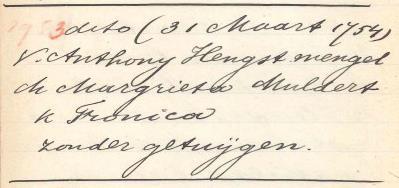 1753 dito (31 Maart 1754)
V. Anthony Hengst mengel
M Margrieta Muldert
K Fronica
zonder getuijgen.